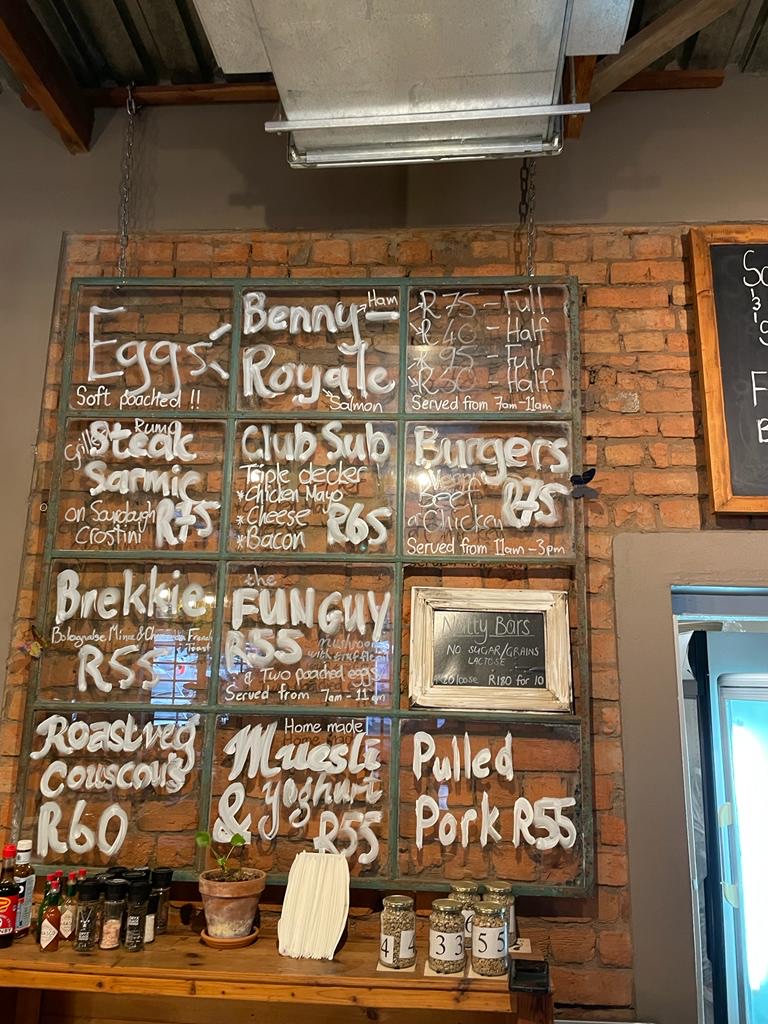 Eggs:
Soft poached !!
Benny - Ham
Royale
Salmon
R75 - Full
R40 - Half
R95 - Full
R50 - Half
Served from 7am-11am
Grilled Rump
Steak
Sarmie
on Sourdough
Crostini R75
Club Sub
Triple decker
*Chicken Mayo
*Cheese
*Bacon R65
Burgers
Beef R75
Chicken
Served from 11am-3pm
Brekkie
Bolognaise Mince & on French
Toast
R55
the
FUN GUY
R55 mushrooms
& Two poached eggs
Served from 7am-11am
Nutty Bars
NO SUGAR/GRAINS
LACTOSE
R20 loose R180 for 10
Roast veg
Couscous
R60
Home made
Muesli
& Yoghurt
R55
Pulled
Pork R55
4 4 33 55